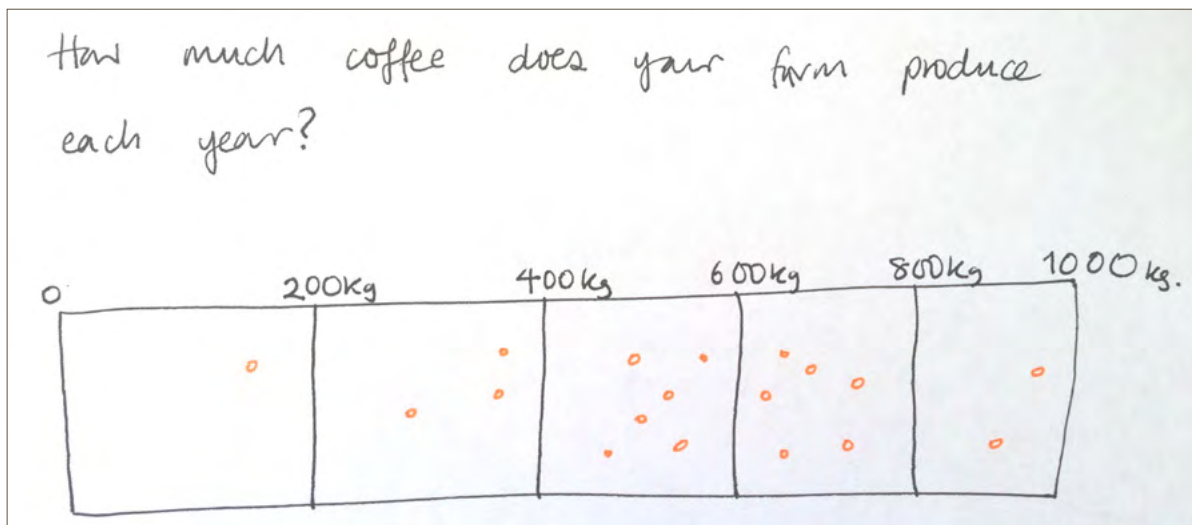 How much coffee does your farm produce
each year?
0 200Kg 400Kg 600Kg 800Kg 1000kg.